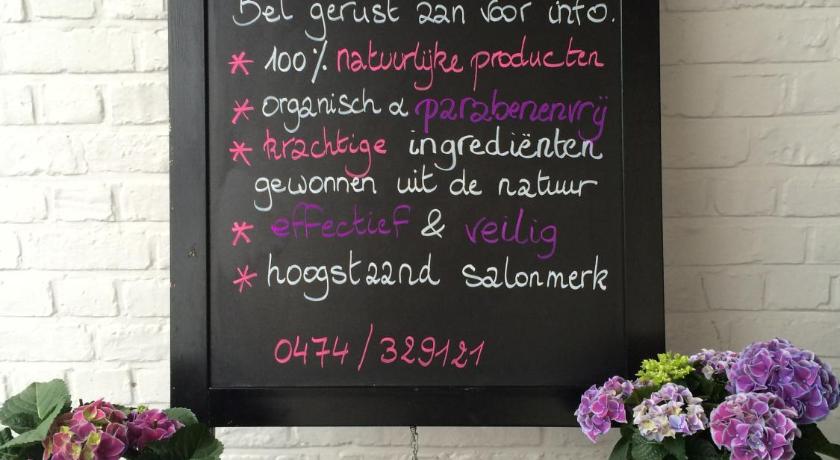 Bel gerust aan voor info.
* 100% natuurlijke producten
* organisch & parabenenvrij
* krachtige ingrediënten
gewonnen uit de natuur
* effectief & veilig
* hoogstaand salonmerk
0474/329121